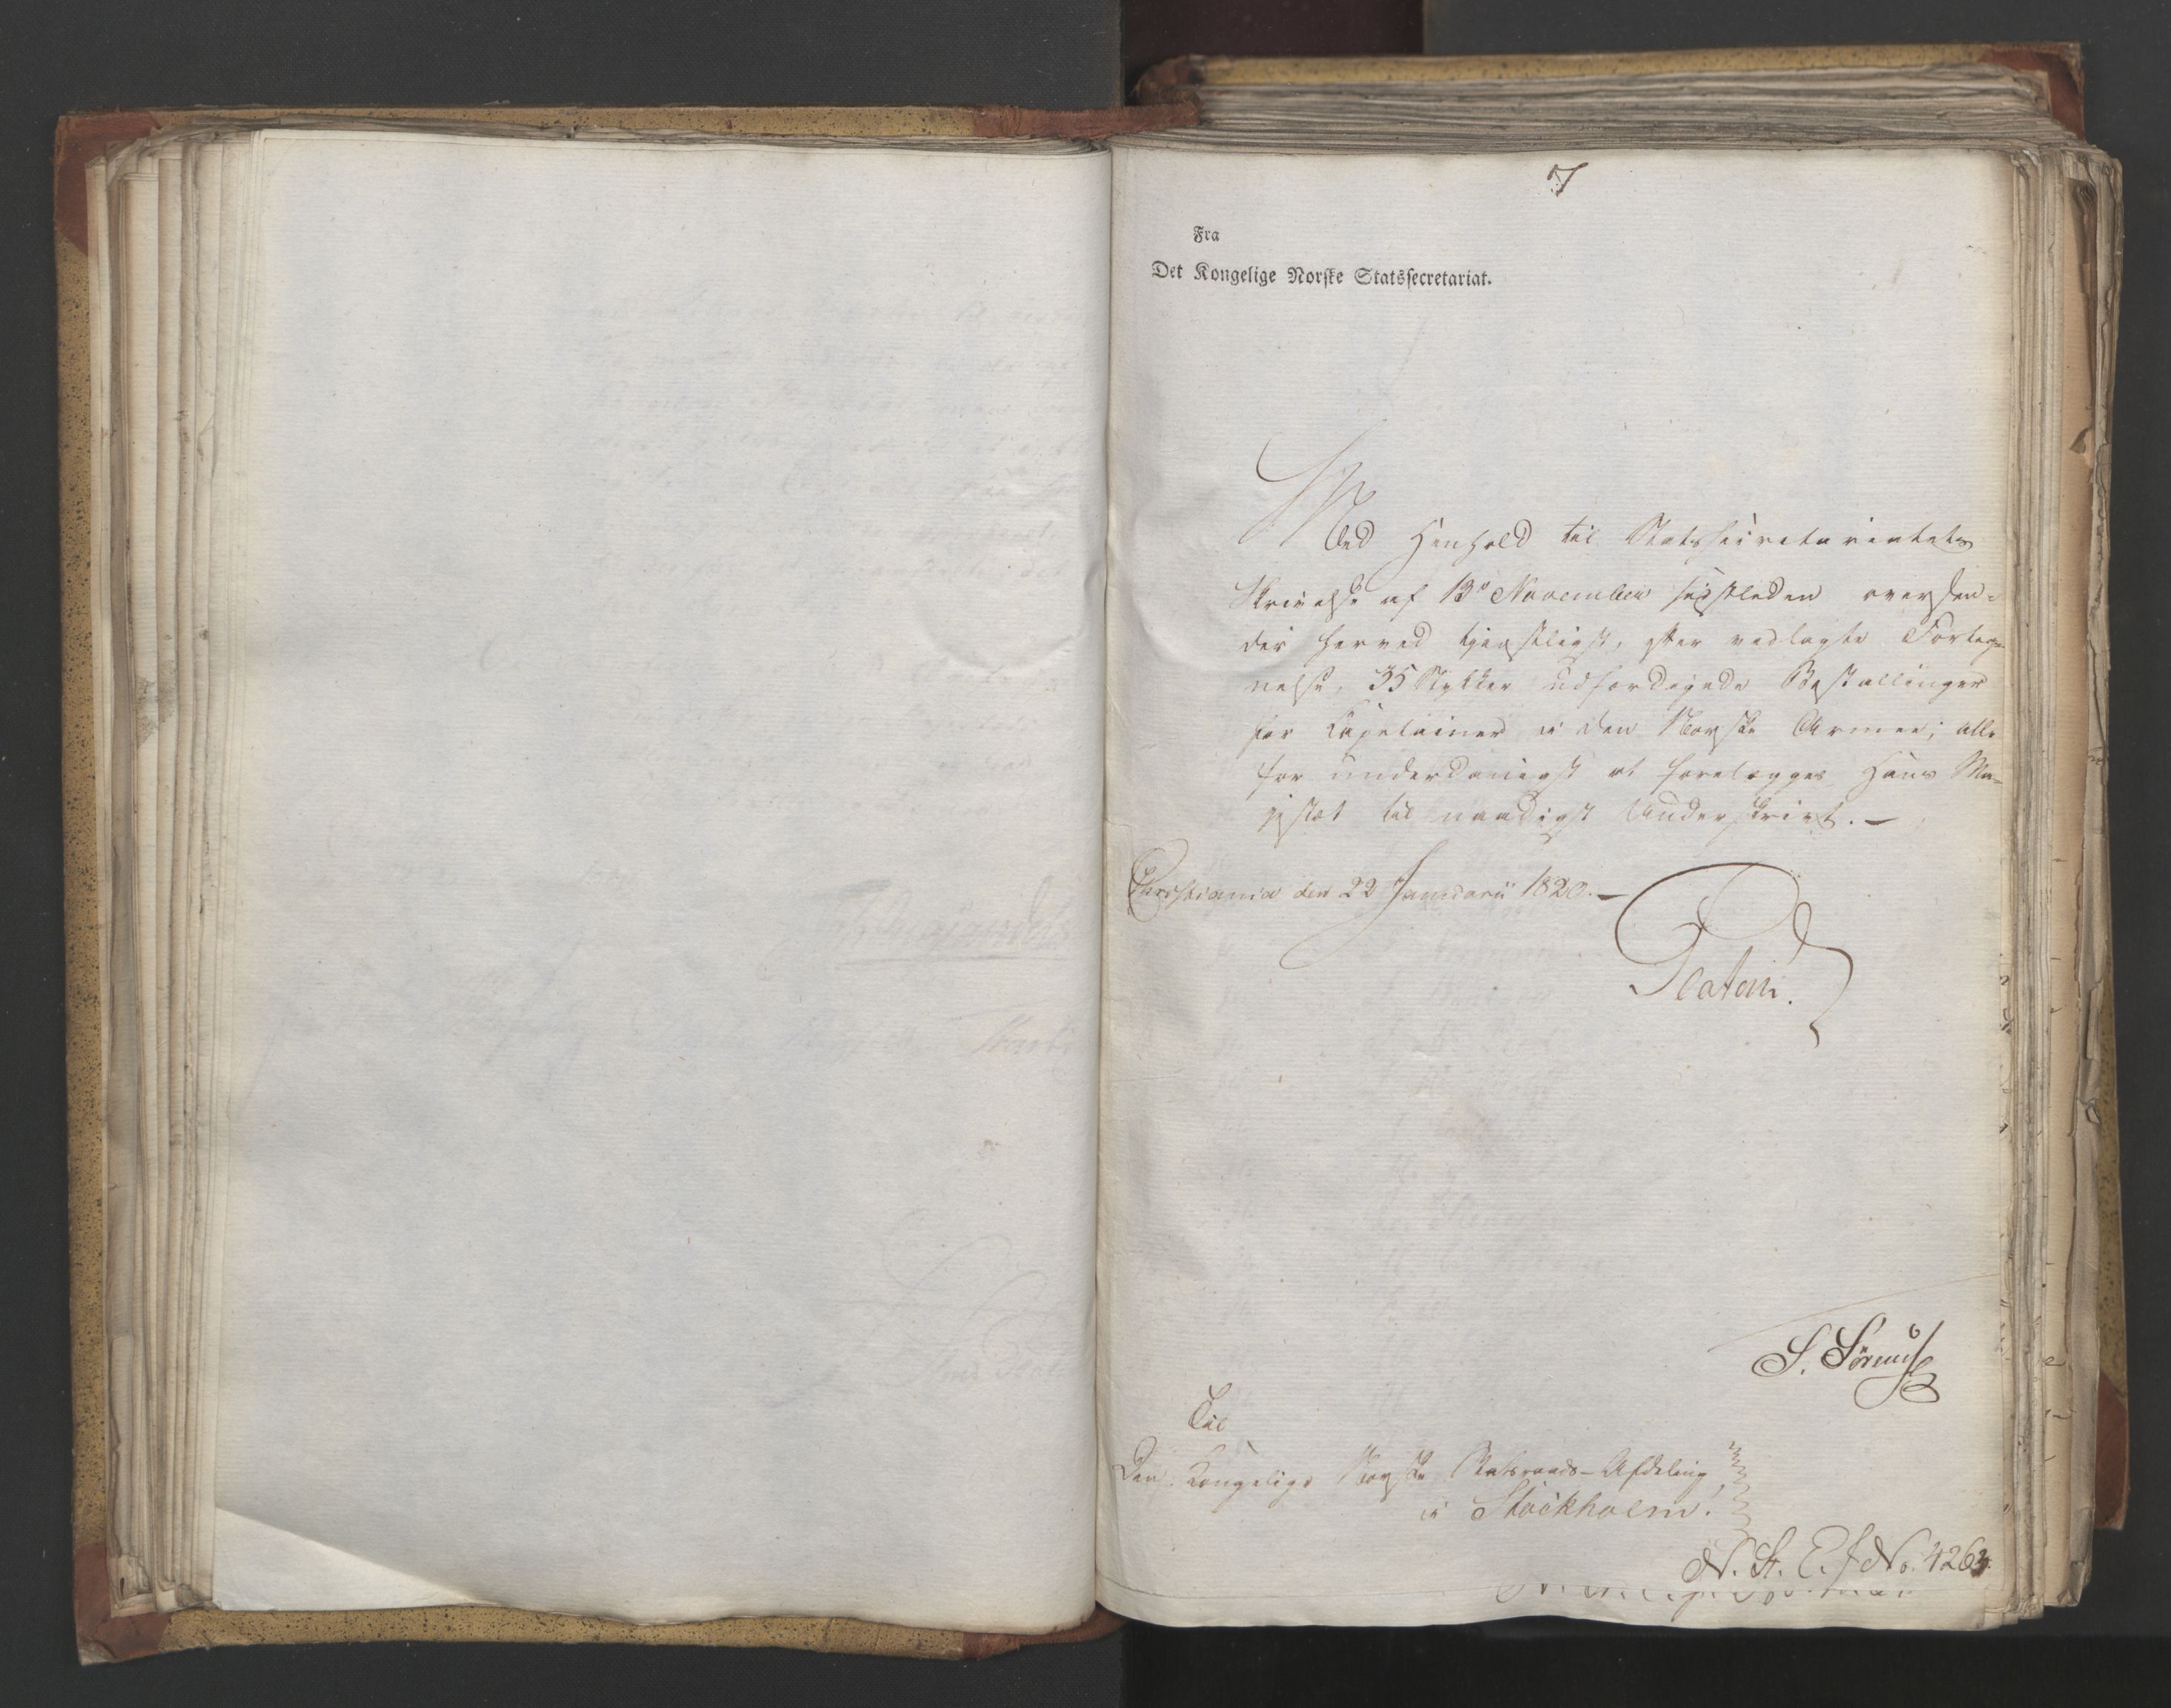 7
Fra
Det Kongelige Norske Statssecretariat.
Med Henhold til Statssecretariatets
Skrivelse af 13de November sidstleden oversen-
des herved tjenstligst, efter vedlagte Forteg-
nelse, 35 Stykker udfærdigede Bestallinger
for Capitainer i den Norske Armee; alle
for underdanigst at forelægges Hans Ma-
jestæt til naadigst Underskrivt. –
Christiania den 22 Januarii 1820. –
Platen.
S. Sörensen
Til
Den Kongelige Norske Statsraads-Afdeling
i Stockholm.
N. St. E. f No. 4263.